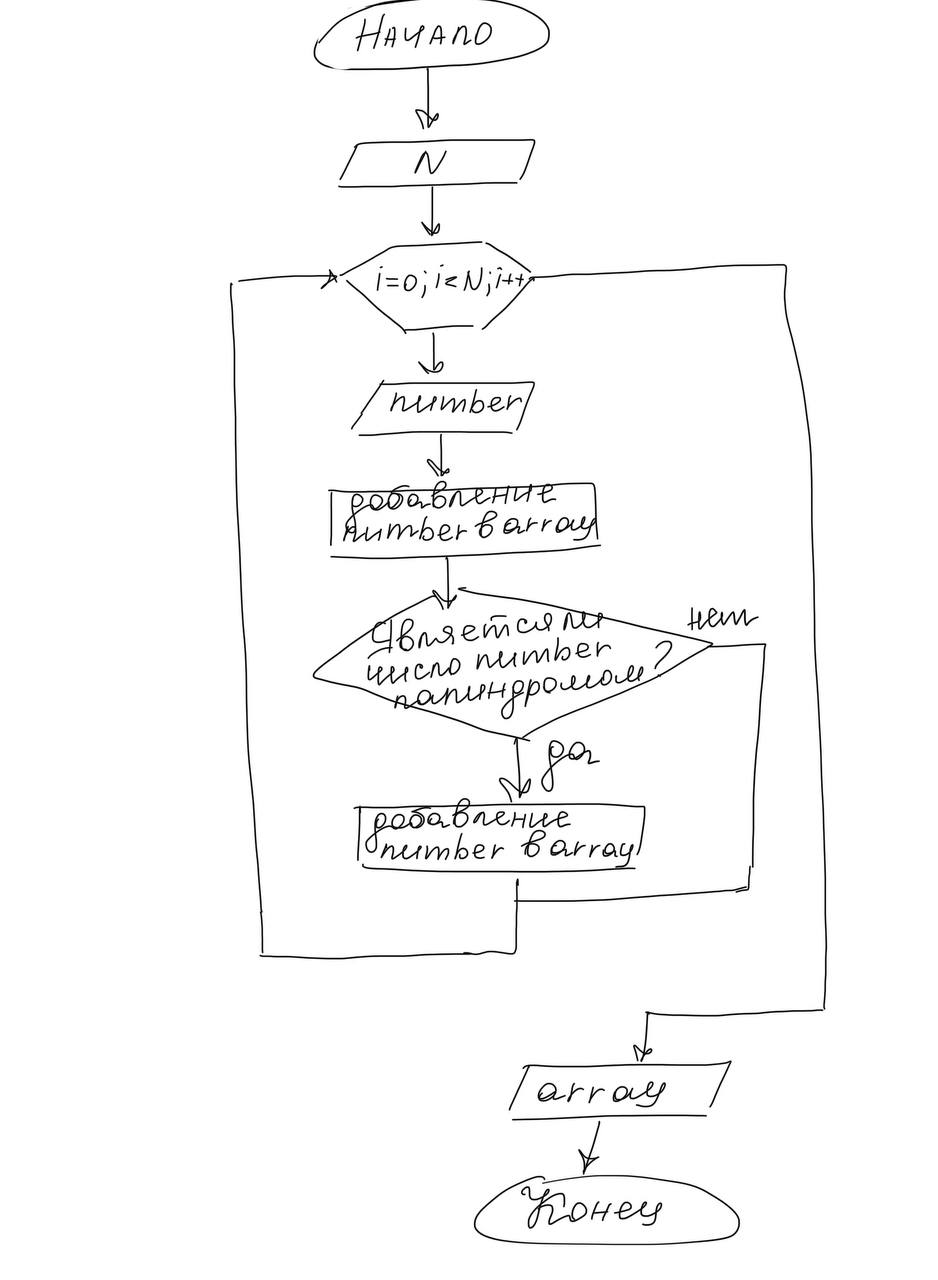 Начало
N
i=0; i<N; i++
number
добавление
number в array
Является ли
число number
палиндромом?
нет
да
добавление
number в array
array
Конец